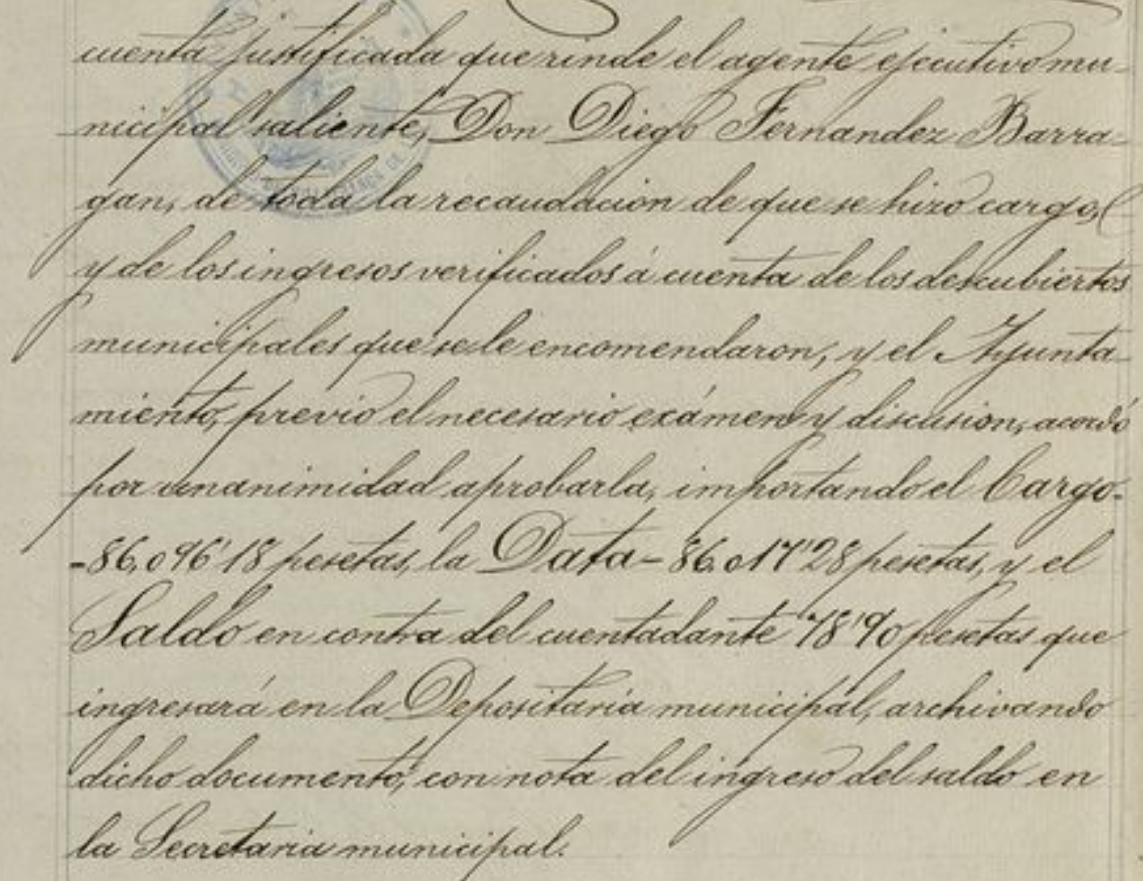 cuenta justificada que rinde el agente ejecutivo mu-
nicipal saliente, Don Diego Fernandez Barra-
gan, de toda la recaudacion de que se hizo cargo,
y de los ingresos verificados á cuenta de los descubiertos
municipales que se le encomendaron, y el Ayunta-
miento, previo el necesario exámen y discusion, acordó
por unanimidad aprobarla, importando el Cargo-
-86,096'18 pesetas, la Data-86.017'28 pesetas, y el
Saldo en contra del cuentadante 78'90 pesetas que
ingresará en la Depositaria municipal, archivando
dicho documento, con nota del ingreso del saldo en
la Secretaria municipal.